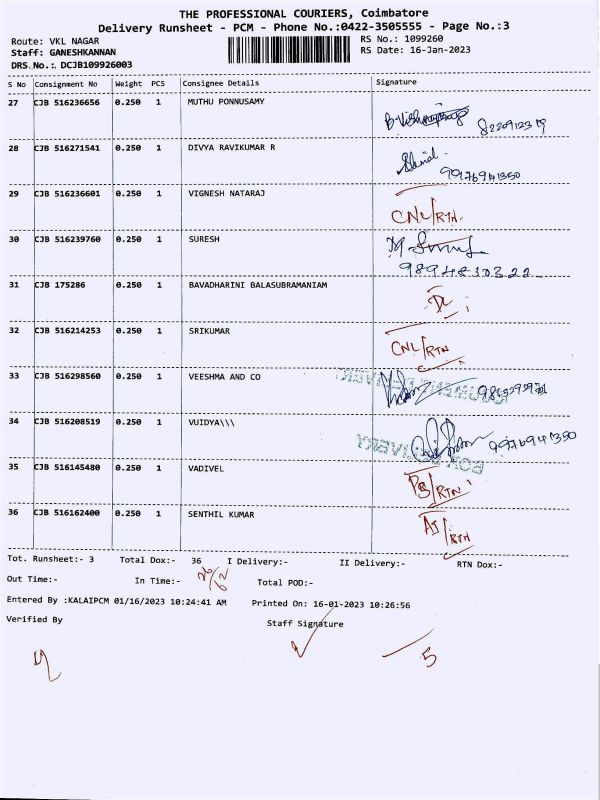 THE PROFESSIONAL COURIERS, Coimbatore
Delivery Runsheet - PCM - Phone No.:0422-3505555 - Page No.:3
Route: VKL NAGAR RS No.: 1099260
Staff: GANESHKANNAN RS Date: 16-Jan-2023
DRS.No.:. DCJB109926003
S No Consignment No Weight PCS Consignee Details Signature
27 CJB 516236656 0.250 1 MUTHU PONNUSAMY
28 CJB 516271541 0.250 1 DIVYA RAVIKUMAR R
9976941350
29 CJB 516236601 0.250 1 VIGNESH NATARAJ
CNL/RTN.
30 CJB 516239760 0.250 1 SURESH
9894830322
31 CJB 175286 0.250 1 BAVADHARINI BALASUBRAMANIAM
DL
32 CJB 516214253 0.250 1 SRIKUMAR
CNL/RTN
33 CJB 516298560 0.250 1 VEESHMA AND CO
34 CJB 516208519 0.250 1 VUIDYA\\\
9976941350
BOX DELIVERY
35 CJB 516145480 0.250 1 VADIVEL
/RTN
36 CJB 516162400 0.250 1 SENTHIL KUMAR
/RTN
Tot. Runsheet:- 3 Total Dox:- 36 I Delivery:- II Delivery:- RTN Dox:-
Out Time:- In Time:- Total POD:-
Entered By :KALAIPCM 01/16/2023 10:24:41 AM Printed On: 16-01-2023 10:26:56
Verified By Staff Signature
5